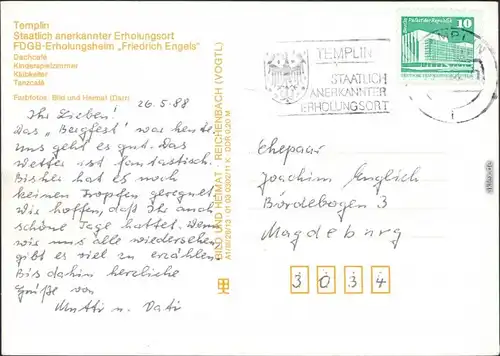 Templin
Staatlich anerkannter Erholungsort
FDGB-Erholungsheim „Friedrich Engels"
Dachcafé
Kinderspielzimmer
Klubkeller
Tanzcafé
Farbfotos: Bild und Heimat (Darr)
26.5.88
Ihr Lieben!
Das „Bergfest" war heute
uns geht es gut. Das
Wetter ist fantastisch.
Bisher hat es noch
keinen Tropfen geregnet
Wir hoffen, daß Ihr auch
schöne Tage hattet. Wenn
wir uns alle wiedersehen,
gibt es viel zu erzählen.
Bis dahin herzliche
Grüße von
Mutti u. Vati
BILD UND HEIMAT · REICHENBACH (VOGTL)
TEMPLIN
STAATLICH
ANERKANNTER
ERHOLUNGSORT
Palast der Republik
10
Ehepaar
Joachim Englich
Bördebogen 3
Magdeburg
3034